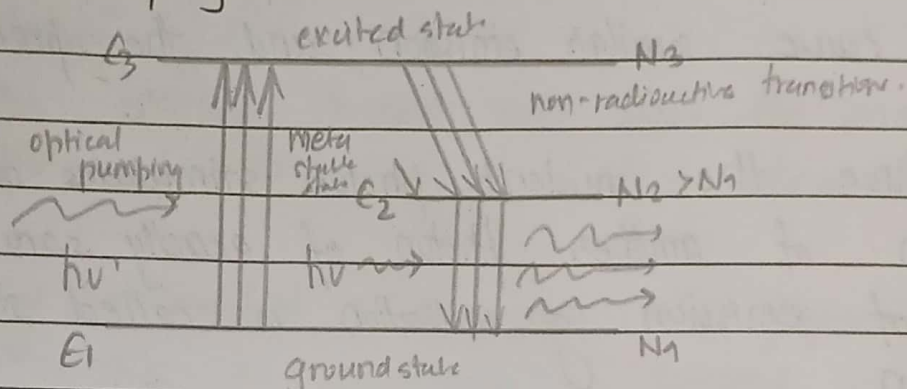 excited state
E3
N3
non-radioactive transitions.
optical
pumping
meta
stable
state
E2
N2 > N1
hν'
hν
E1
N1
ground state